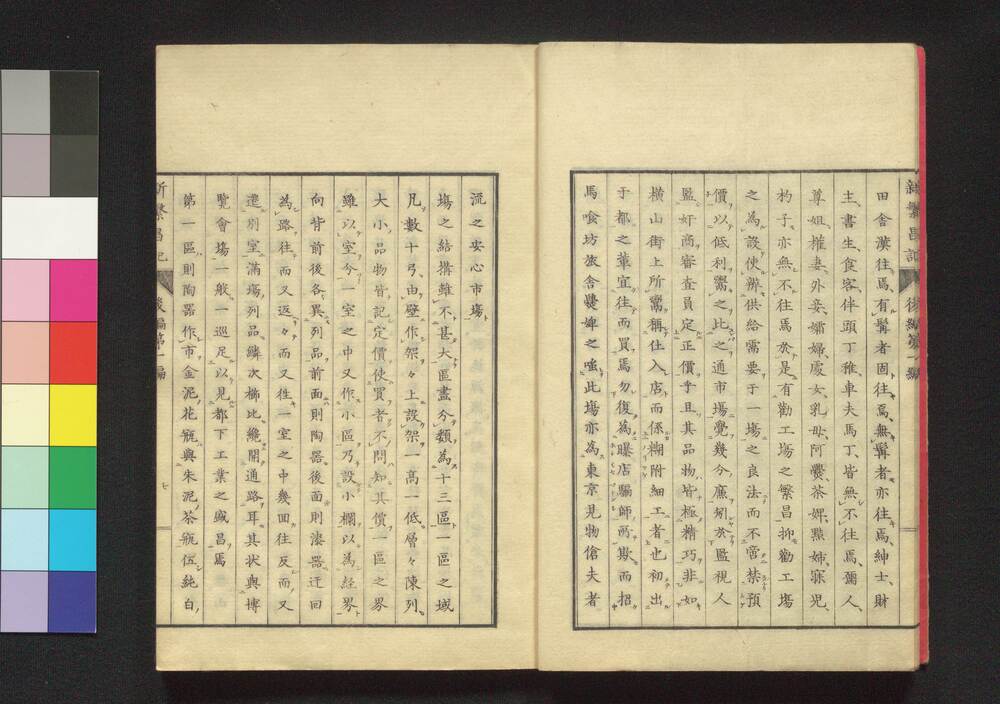 田舎漢往焉、有髯者固往焉、無髯者亦往焉、紳士、財
主、書生、食客、伴頭、丁稚、車夫、馬丁、皆無不往焉、爾人、
尊姐、権妻、外妾、孀婦、處女、乳母、阿爨、茶婢、黠姉、寐児、
杓子亦無不往焉、於是有勸工塲之繁昌、抑勸工塲
之為設、使辨供給需要于一塲之良法、而不啻禁預
價、以低利鬻之、此之通市塲、覺幾分廉、矧於監視人
監奸商、審査員定正價乎、且其品物皆極精巧、非如
横山街上所鬻稱仕入店而係糊附細工者也、初出
于都之輩、宜往而買焉、勿復為曝店騙師所欺、而招
馬喰坊旅舎爨婢之嗤、此塲亦為東京見物傖夫者
流之安心市塲
塲之結搆雖不甚大、區畫分類為十三區、一區之域
凡數十弓、由壁作架、々上設架、一高一低、層々陳列、
大小品物皆記定價、使買者不問知其價、一區之界
雖以室分、一室之中又作小區、乃設小欄以為經界、
向背前後各異列品、前面則陶器、後面則漆器、迂回
為路、往而又返、々而又往、一室之中幾回往反、而又
遷別室、滿塲列品鱗次櫛比、纔開通路耳、其状與博
覽會塲一般、一巡足以見都下工業之盛昌焉
第一區則陶器作市、金泥花瓶與朱泥茶瓶伍、純白
新繁昌記
後編第一編
七
新繁昌記
後編第一編